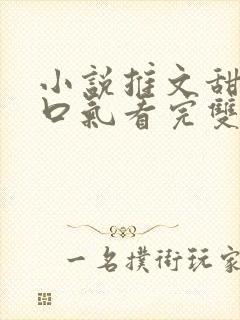 小說推文甜
口氣看完雙
一名撲街玩家